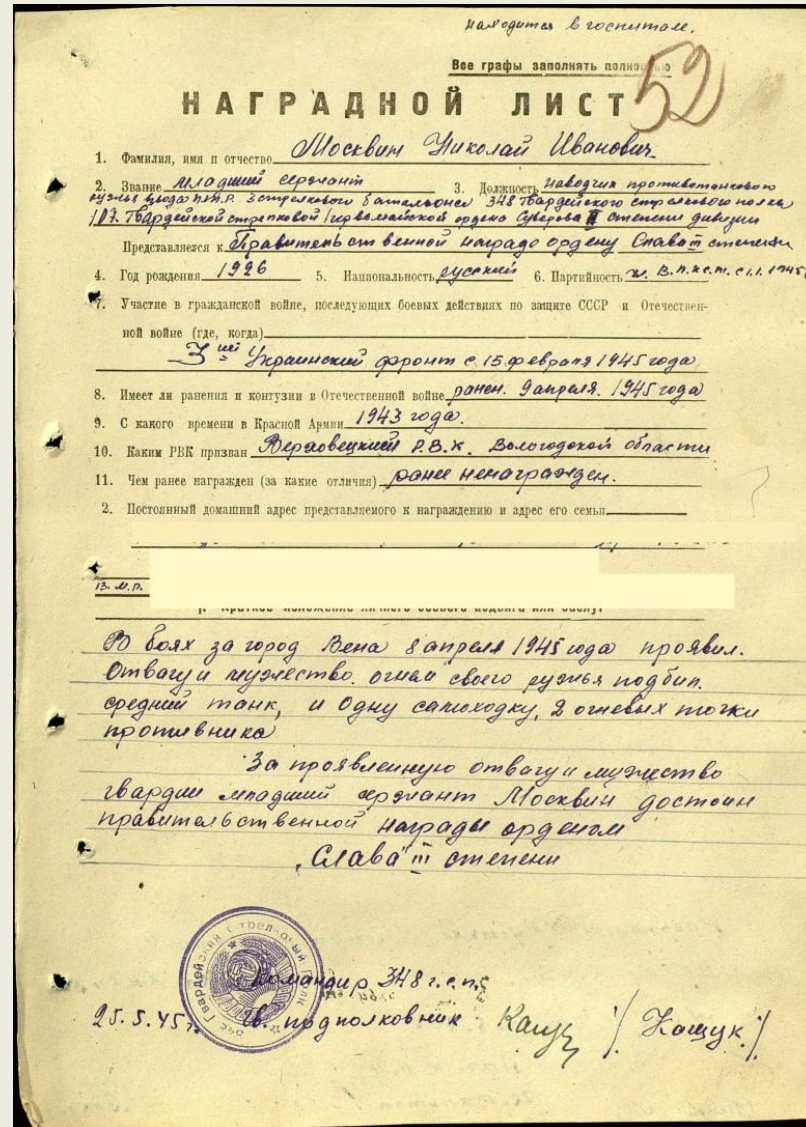 находится в госпитале.
Все графы заполнять полностью
52
НАГРАДНОЙ ЛИСТ
1. Фамилия, имя и отчество Москвин Николай Иванович
2. Звание младший сержант 3. Должность наводчик противотанкового
ружья взвода П.Т.Р. 3 стрелкового батальона 348 Гвардейского стрелкового полка
107 Гвардейской стрелковой Первомайской ордена Суворова II степени дивизии
Представляется к Правительственной награде ордену Слава III степени
4. Год рождения 1926 5. Национальность русский 6. Партийность В.Л.К.С.М. с 1.1. 1945
7. Участие в гражданской войне, последующих боевых действиях по защите СССР и Отечествен-
ной войне (где, когда)
3ий Украинский фронт с 15 февраля 1945 года
8. Имеет ли ранения и контузии в Отечественной войне ранен. 9 апреля. 1945 года
9. С какого времени в Красной Армии 1943 года.
10. Каким РВК призван Верховецкий Р.В.К. Вологодской области
11. Чем ранее награжден (за какие отличия) ранее ненагражден.
2. Постоянный домашний адрес представляемого к награждению и адрес его семьи
13. М.П.
I. Краткое изложение личного боевого подвига или заслуг
В боях за город Вена 8 апреля 1945 года проявил.
Отвагу и мужество. огнем своего ружья подбил.
средний танк, и Одну самоходку, 2 огневых точки
противника
За проявленную отвагу и мужество
гвардии младший сержант Москвин достоин
правительственной награды орденом
„Слава" III степени
Гвардейский стрелковый полк
Командир 348 г.с.п.
25.5.45 г. Гв. подполковник Кащук / Кащук /